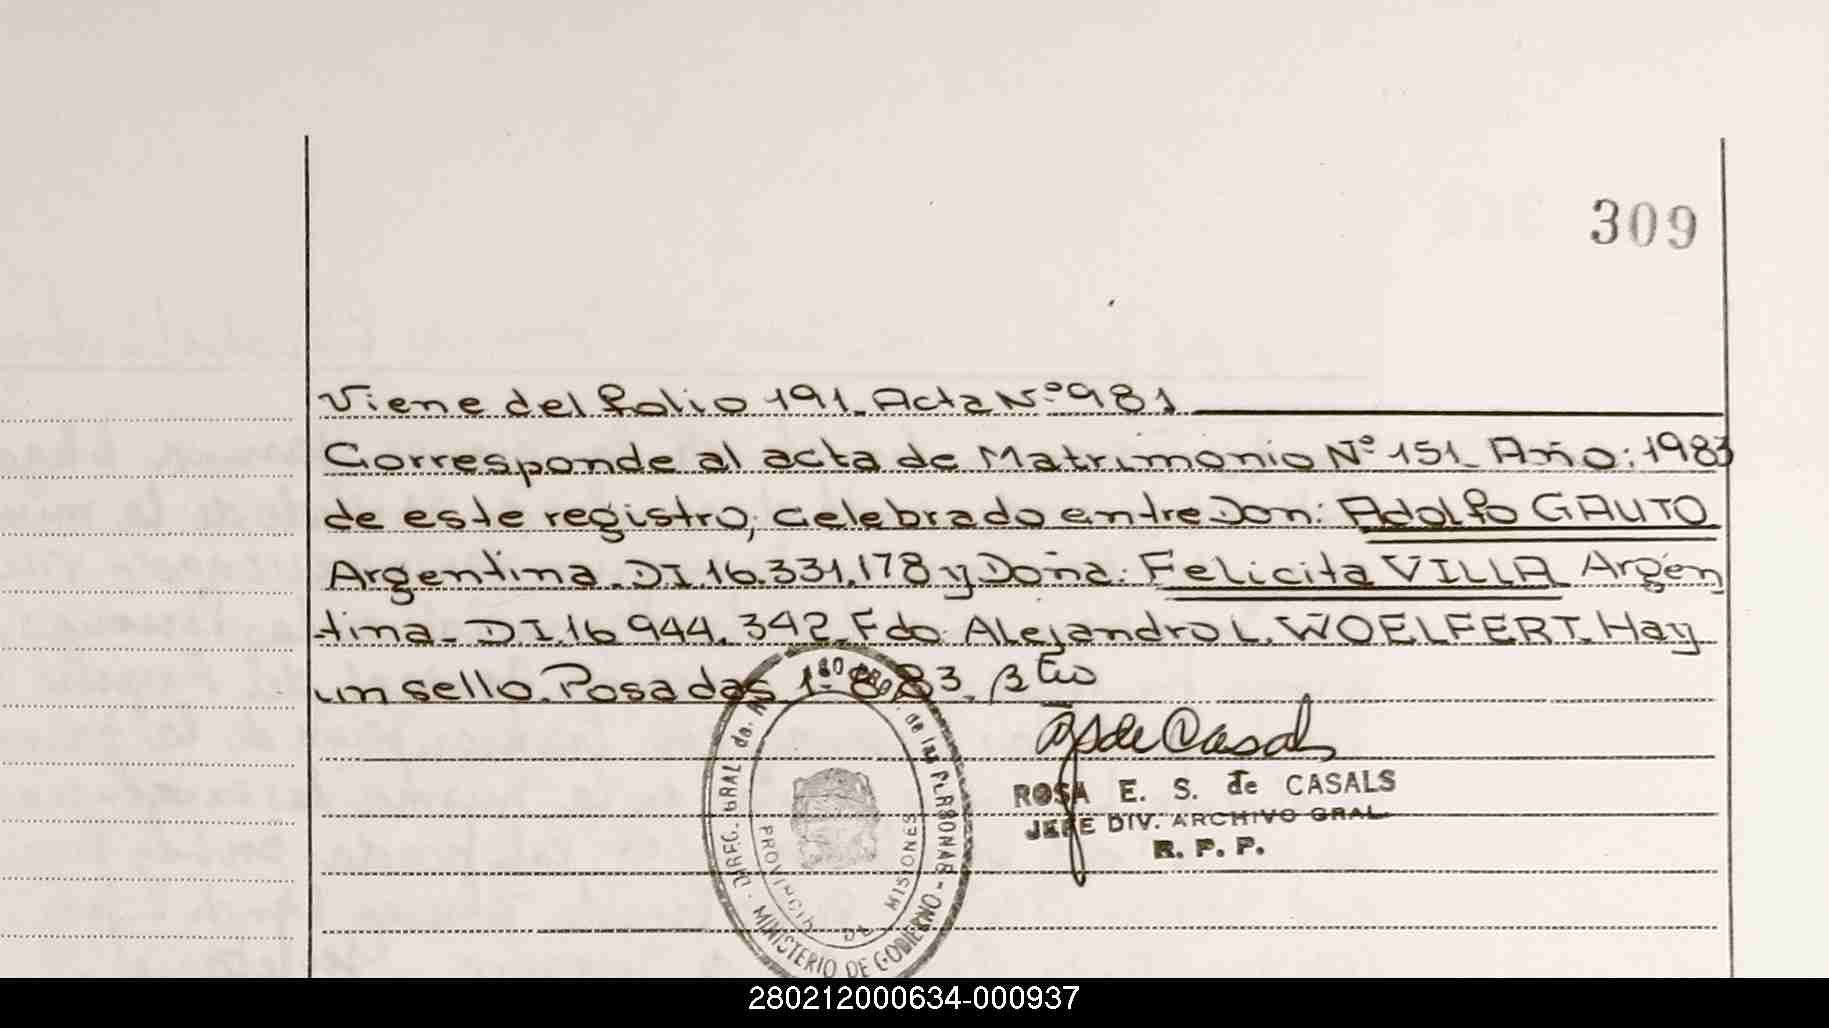 309
Viene del folio 191. Acta Nº 981
Corresponde al acta de Matrimonio Nº 151. Año: 1983
de este registro, celebrado entre Don: Adolfo GAUTO
Argentina. DI 16.331.178 y Doña: Felicita VILLA Argen
tina. DI.16 944.342. Fdo: Alejandro L. WOELFERT. Hay
un sello. Posadas 1º 883.
RS de Casals
ROSA E. S. de CASALS
JEFE DIV. ARCHIVO GRAL.
R. P. P.
DIREC. GRAL de las PERSONAS - MINISTERIO DE GOBIERNO
PROVINCIA DE MISIONES
280212000634-000937